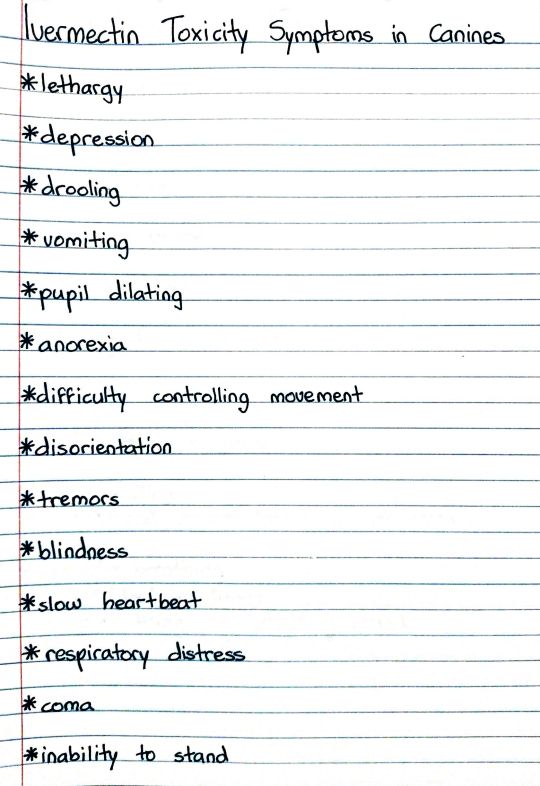 Ivermectin Toxicity Symptoms in Canines
*lethargy
*depression
*drooling
*vomiting
*pupil dilating
*anorexia
*difficulty controlling movement
*disorientation
*tremors
*blindness
*slow heartbeat
*respiratory distress
*coma
*inability to stand